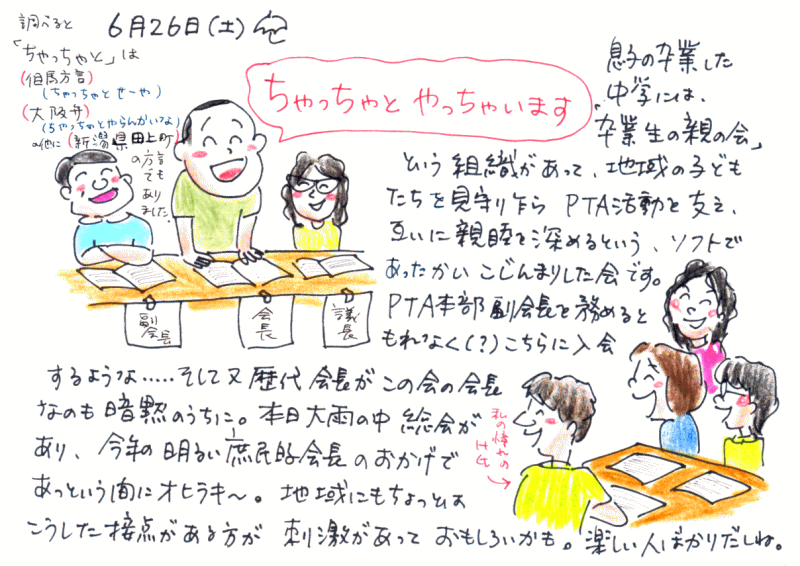 6月26日(土)
調べると
「ちゃっちゃと」は
(但馬方言)
(ちゃっちゃとせーや)
(大阪弁)
(ちゃっちゃとやらんかいなよ)
の他に(新潟県田上町)
の方言
でも
あり
ました。
ちゃっちゃと やっちゃいます
副会長
会長
議長
息子の卒業した
中学には、
「卒業生の親の会」
という組織があって、地域の子ども
たちを見守り乍ら PTA活動を支え、
互いに親睦を深めるという、ソフトで
あったかい こじんまりした会です。
PTA本部副会長を務めると
もれなく(?)こちらに入会
するような.....そして又 歴代会長がこの会の会長
なのも暗黙のうちに。本日大雨の中 総会が
あり、今年の明るい庶民的会長のおかげで
あっという間にオヒラキ〜。地域にもちょっとは
こうした接点がある方が 刺激があって おもしろいかも。楽しい人ばかりだしね。
私の憧れの